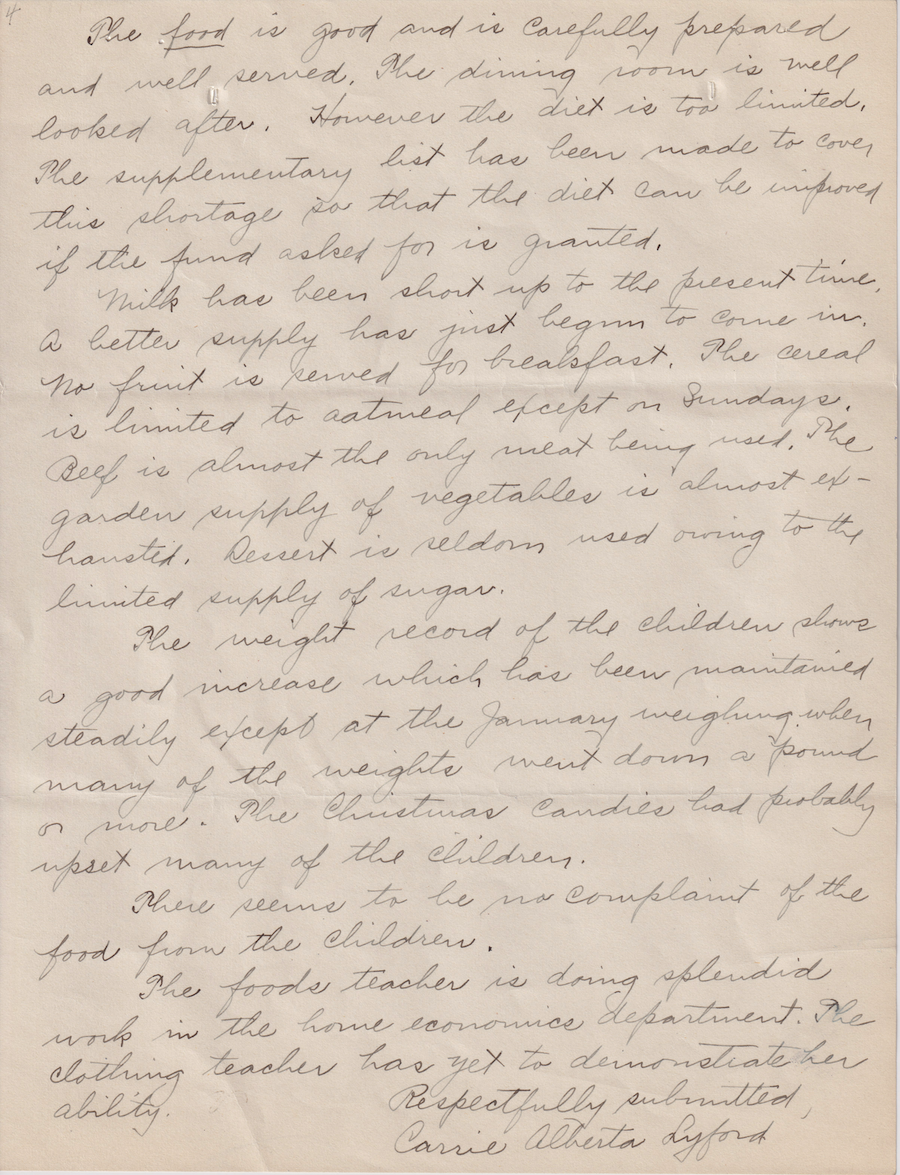 4
The food is good and is carefully prepared
and well served. The dining room is well
looked after. However the diet is too limited.
The supplementary list has been made to cover
this shortage so that the diet can be improved
if the fund asked for is granted.
Milk has been short up to the present time.
A better supply has just begun to come in.
No fruit is served for breakfast. The cereal
is limited to oatmeal except on Sundays.
Beef is almost the only meat being used. The
garden supply of vegetables is almost ex-
hausted. Dessert is seldom used owing to the
limited supply of sugar.
The weight record of the children shows
a good increase which has been maintained
steadily except at the January weighing when
many of the weights went down a pound
or more. The Christmas candies had probably
upset many of the children.
There seems to be no complaint of the
food from the children.
The foods teacher is doing splendid
work in the home economics department. The
clothing teacher has yet to demonstrate her
ability.
Respectfully submitted,
Carrie Alberta Lyford